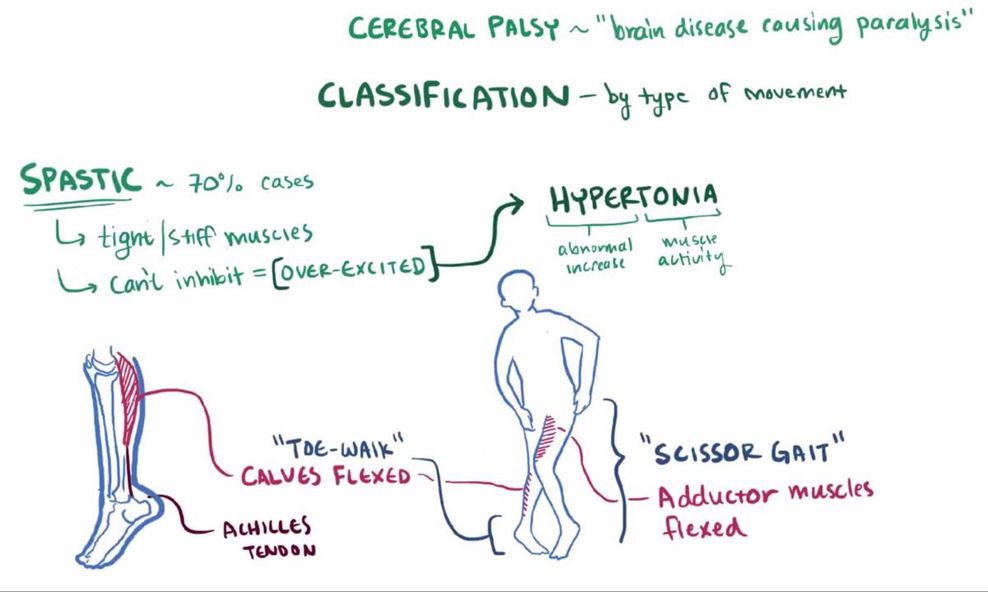 CEREBRAL PALSY ~ "brain disease causing paralysis"
CLASSIFICATION - by type of movement
SPASTIC ~ 70% cases
↳ tight/stiff muscles
↳ can't inhibit = [OVER-EXCITED]
HYPERTONIA
abnormal
increase
muscle
activity
"TOE-WALK"
CALVES FLEXED
ACHILLES
TENDON
"SCISSOR GAIT"
Adductor muscles
flexed